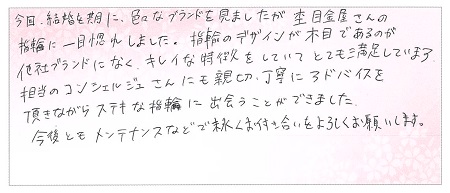 今回、結婚を期に、色々なブランドを見ましたが杢目金屋さんの
指輪に一目惚れしました。指輪のデザインが木目であるのが
他社ブランドになく、キレイな特徴をしていてとても満足しています
担当のコンシェルジュさんにも親切、丁寧にアドバイスを
頂きながらステキな指輪に出会うことができました。
今後ともメンテナンスなどで末永くお付き合いをよろしくお願いします。